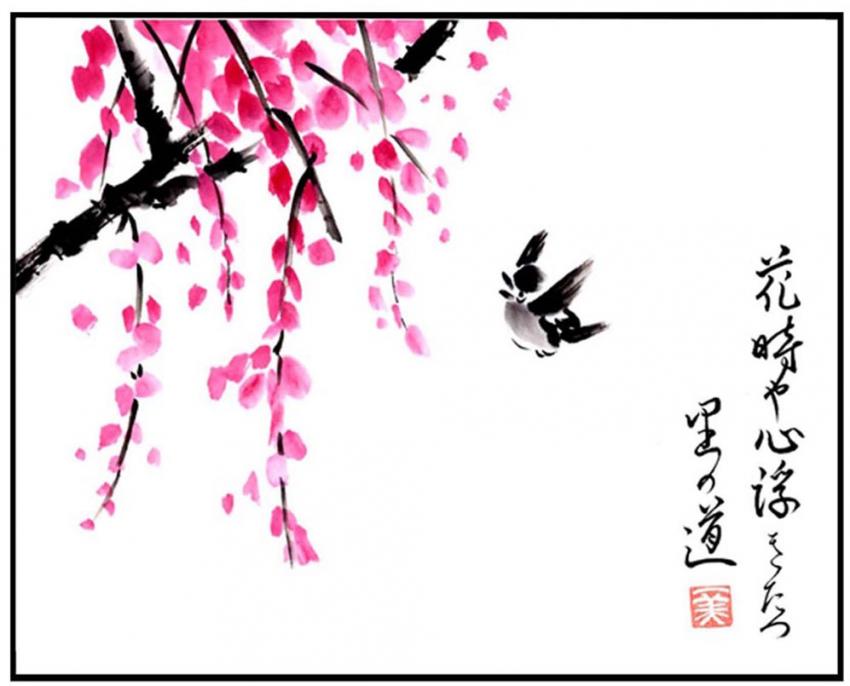 花時や心浮きたつ
里の道
一美